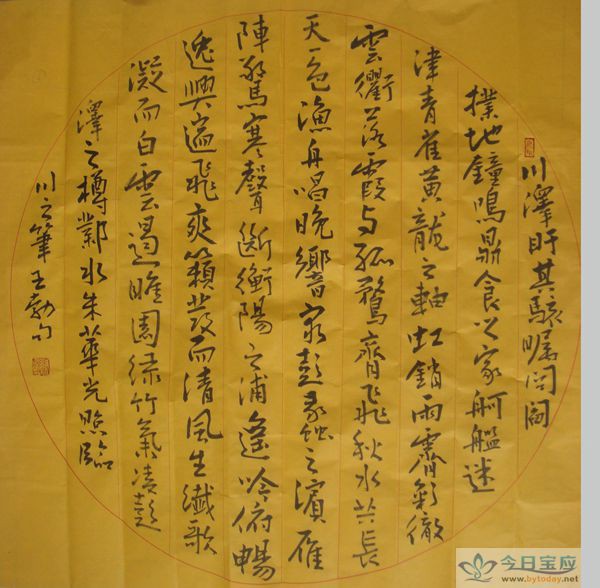 川澤盱其駭矚閭閻
撲地鐘鳴鼎食之家舸艦迷
津青雀黃龍之軸虹銷雨霽彩徹
雲衢落霞与孤鶩齊飛秋水共長
天一色漁舟唱晚響窮彭蠡之濱雁
陣驚寒聲斷衡陽之浦遥吟俯暢
逸興遄飛爽籟發而清風生纖歌
凝而白雲遏睢園绿竹氣凌彭
澤之樽鄴水朱華光照臨
川之筆王勃句
今日宝应
www.bytoday.net